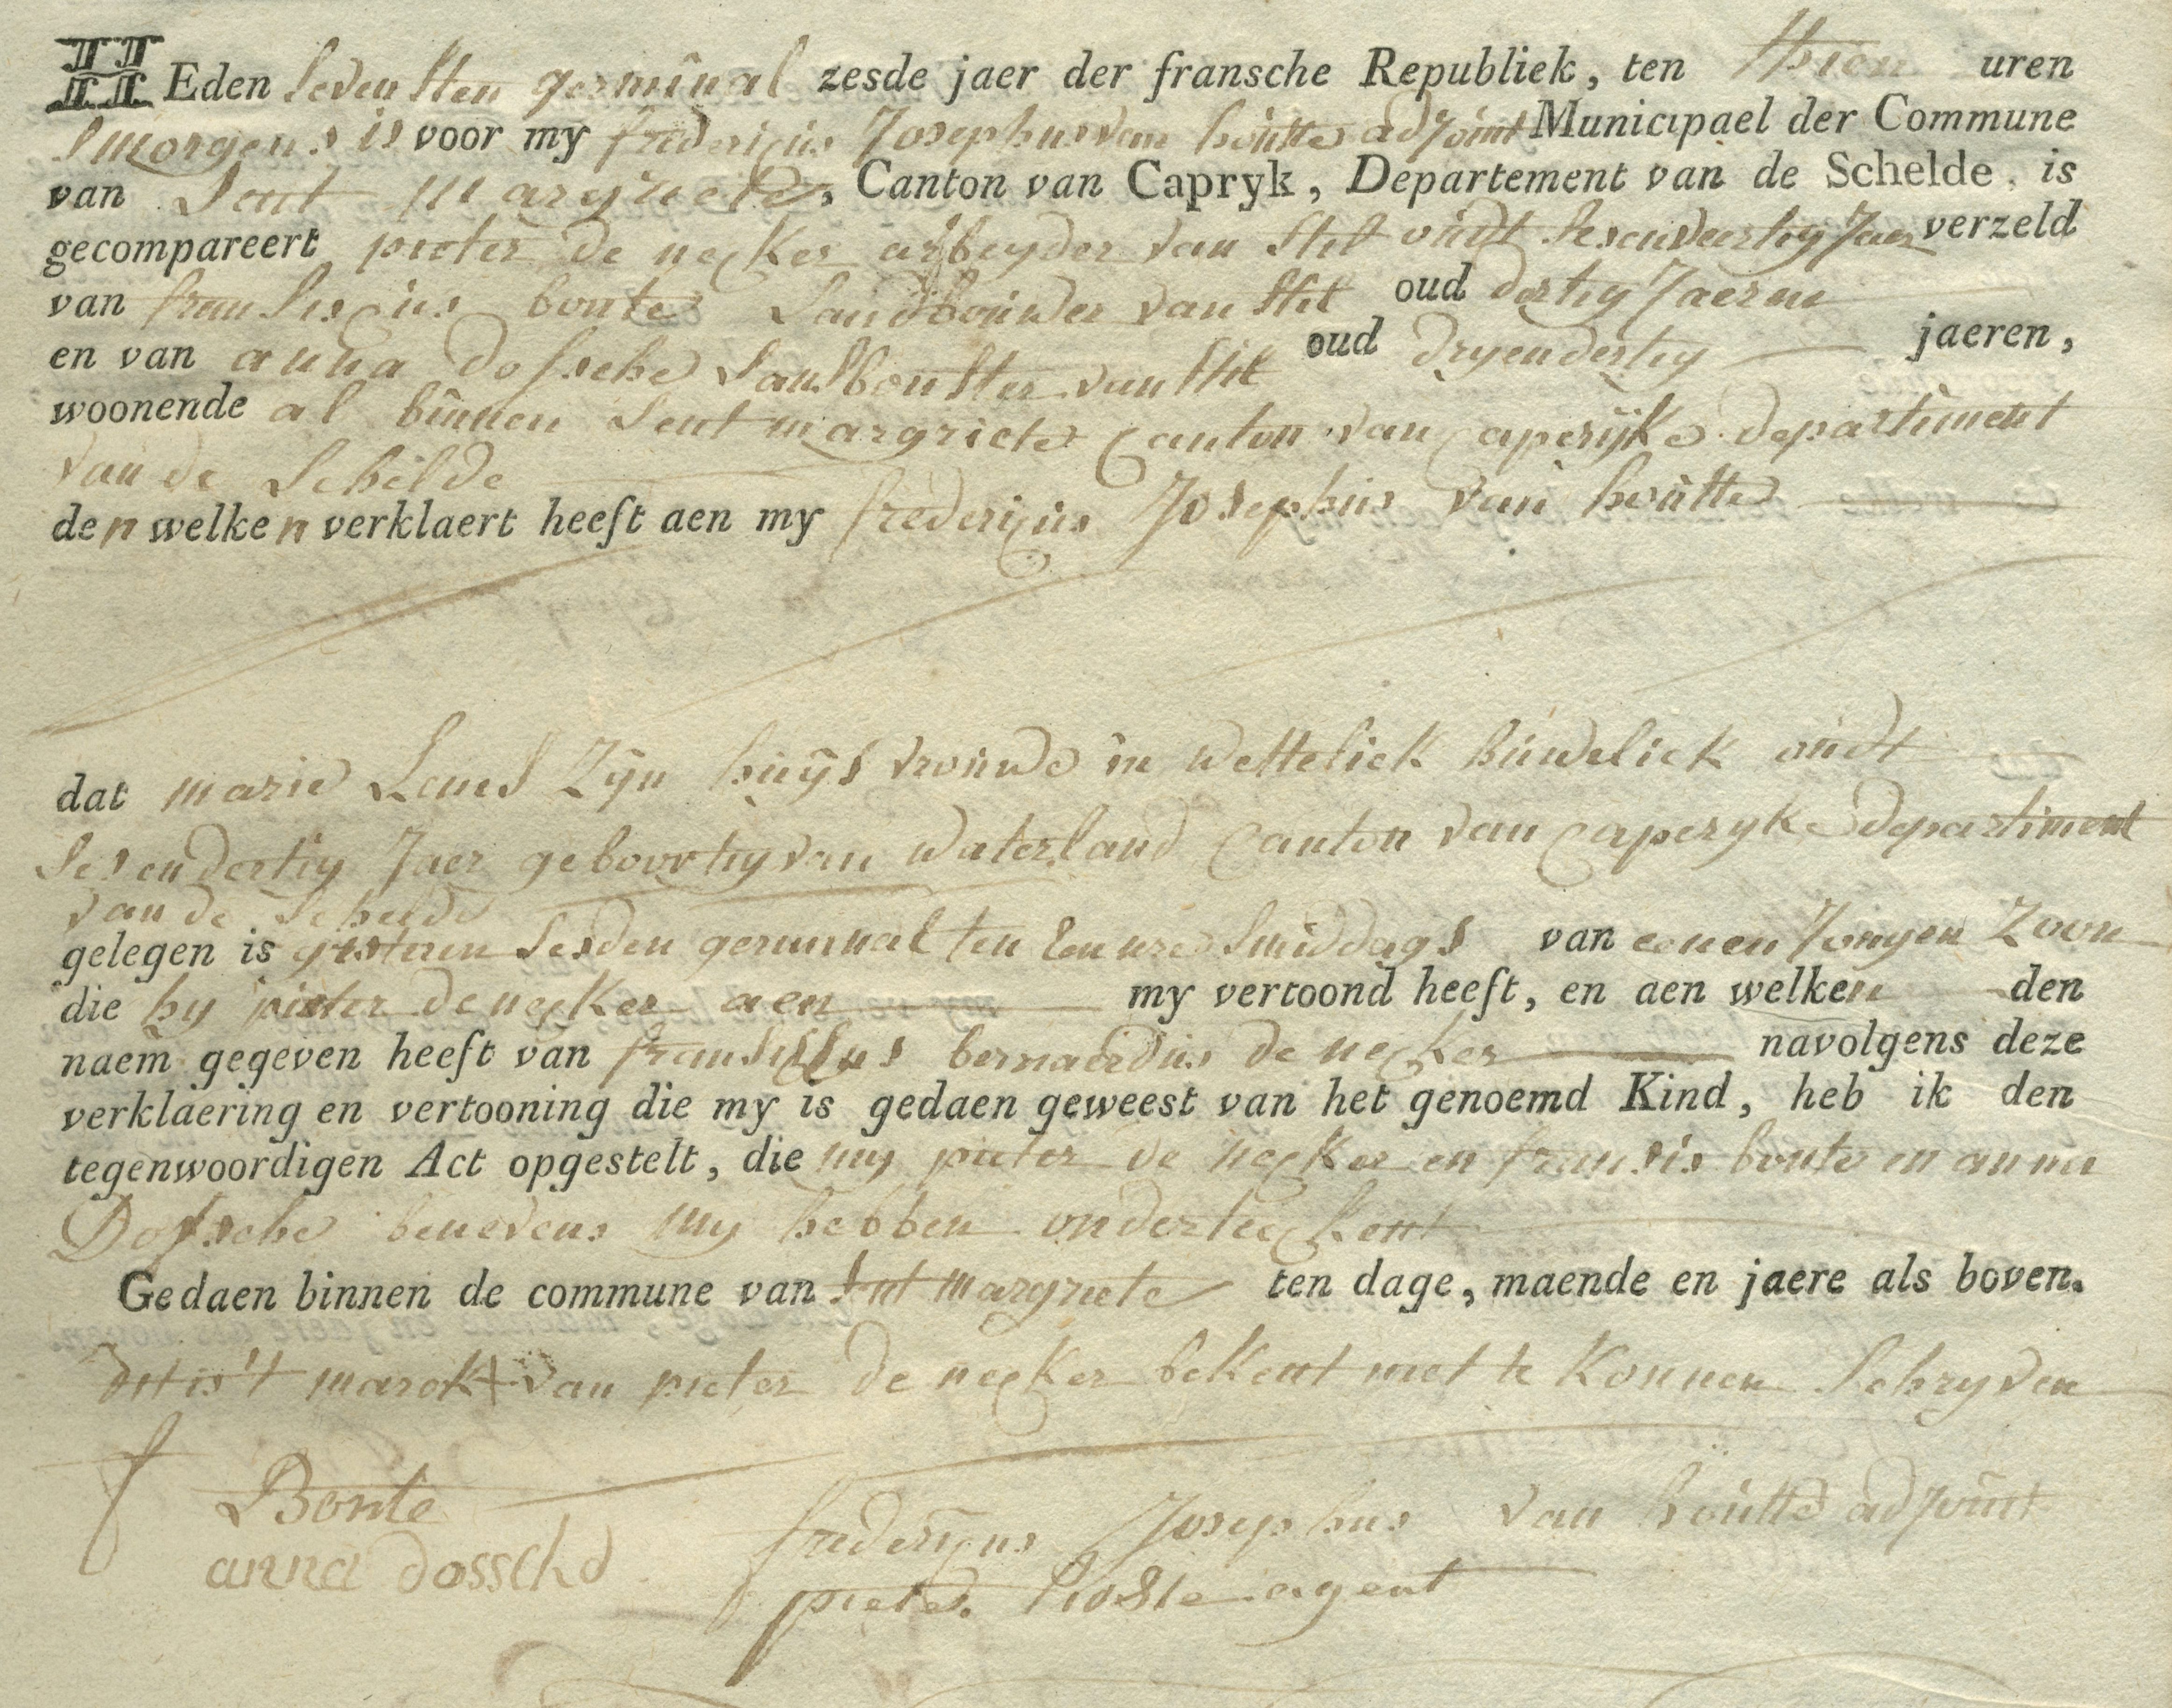 HEden sevensten germinal zesde jaer der fransche Republiek, ten thien uren
smorgens is voor my fredericus Josephus van houtte adjoint Municipael der Commune
van Sent margriete, Canton van Capryk, Departement van de Schelde, is
gecompareert pieter de necker arbeyder van stil oudt sesenveertig Jaer verzeld
van fransiscus bonte Landbouwer van stil oud dertig Jaeren
en van anna dossche Landboustter van stil oud dryendertig jaeren,
woonende al binnen Sent margriete Canton van Caperijke departiment
van de Schilde
den welken verklaert heeft aen my fredericus Josephus van houtte
dat marie Lams Zijn huijs vrouwe in wetteliek huweliek oudt
sesendertig Jaer geboortig van waterland Canton van Caperyke departiment
van de Schelde
gelegen is gisteren sesden germinal ten een ure smiddags van eenen Jongen Zoon
die hy pieter de necker aen my vertoond heeft, en aen welken den
naem gegeven heeft van fransiscus bernaerdus de necker navolgens deze
verklaering en vertooning die my is gedaen geweest van het genoemd Kind, heb ik den
tegenwoordigen Act opgestelt, die my pieter de necker en fransis bonte en anna
Dossche benevens my hebben onderteeckent
Gedaen binnen de commune van Sent margriete ten dage, maende en jaere als boven.
dit is 't marck + van pieter de necker bekent niet te konnen schryven
f Bonte
anna dossche
fredericus Josephus van houtte adjoint
pieter hoste agent